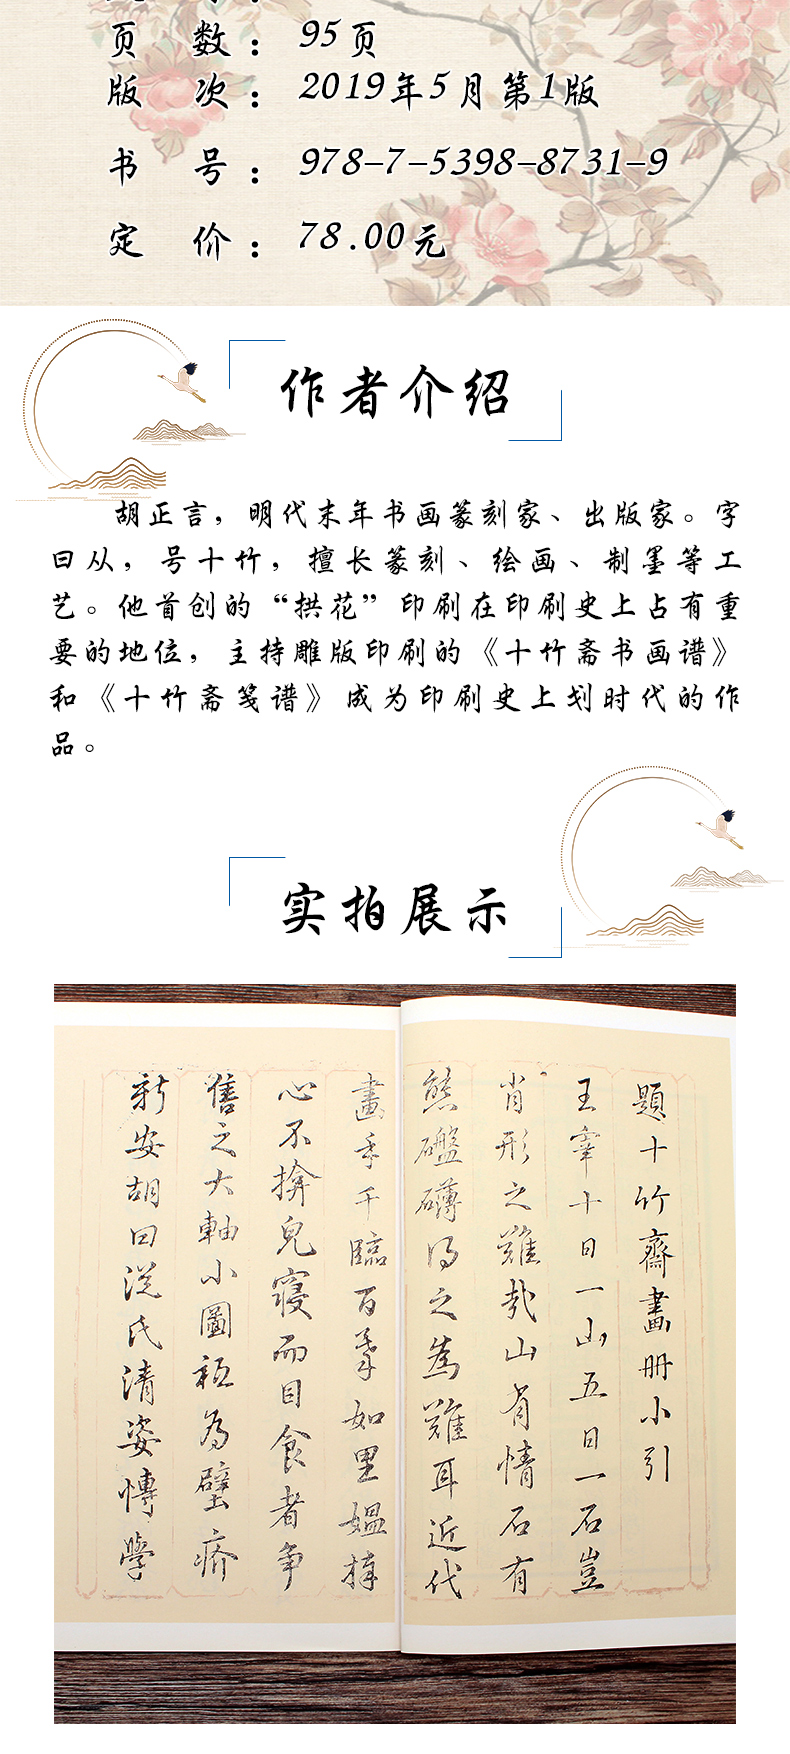 页 数：95页
版 次：2019年5月第1版
书 号：978-7-5398-8731-9
定 价：78.00元
作者介绍
胡正言，明代末年书画篆刻家、出版家。字
曰从，号十竹，擅长篆刻、绘画、制墨等工
艺。他首创的“拱花”印刷在印刷史上占有重
要的地位，主持雕版印刷的《十竹斋书画谱》
和《十竹斋笺谱》成为印刷史上划时代的作
品。
实拍展示
題十竹齋畫册小引
王宰十日一山五日一石豈
肖形之難哉山有情石有
態礴得之為難耳近代
畫手千臨百摹如里媼捧
心不揜皃寢而目食者爭
售之大軸小圖秖為壁疥
新安胡曰從氏清姿博學